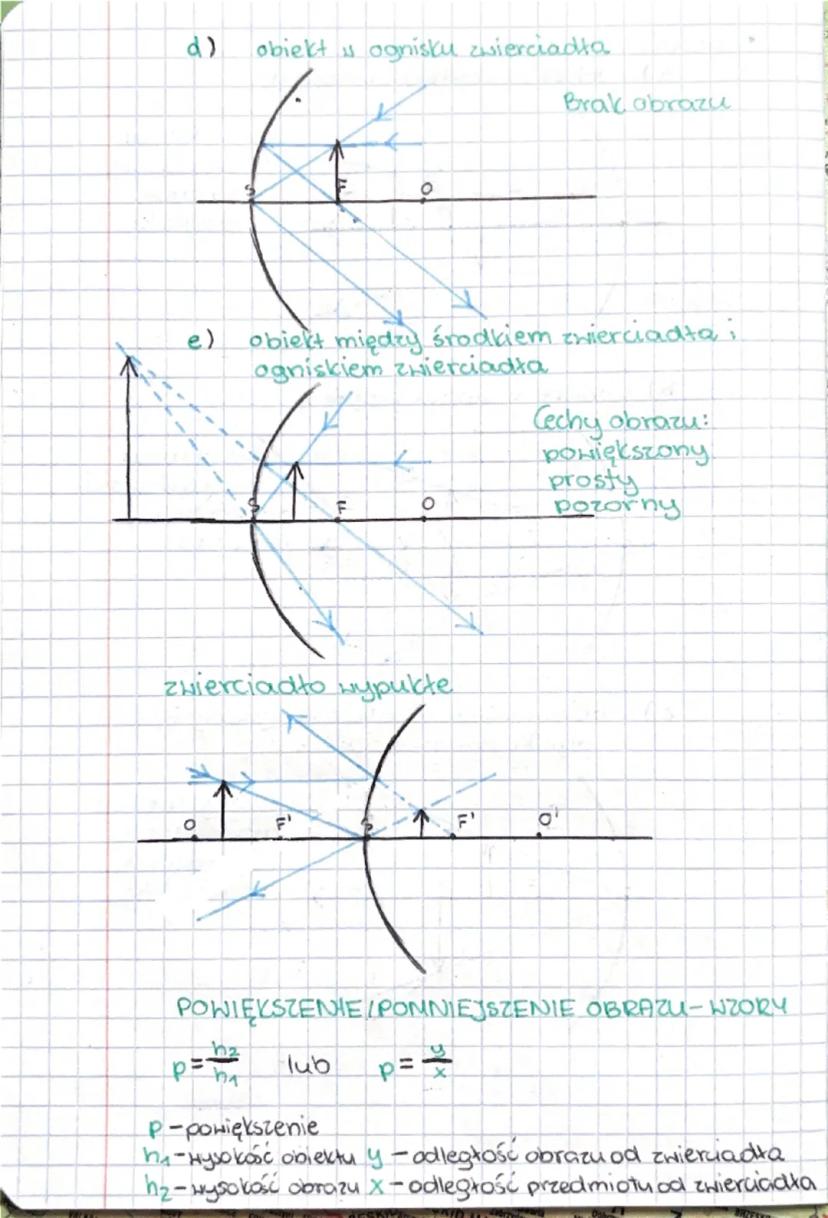 d) obiekt w ognisku zwierciadła
Brak obrazu
S F O
e) obiekt między środkiem zwierciadła i
ogniskiem zwierciadła
Cechy obrazu:
powiększony
prosty
pozorny
S F O
zwierciadło wypukłe
O F' S F' O'
POWIĘKSZENIE/POMNIEJSZENIE OBRAZU-WZORY
p=h₂/h₁ lub p=y/x
p-powiększenie
h₁-wysokość obiektu y-odległość obrazu od zwierciadła
h₂-wysokość obrazu x-odległość przedmiotu od zwierciadła